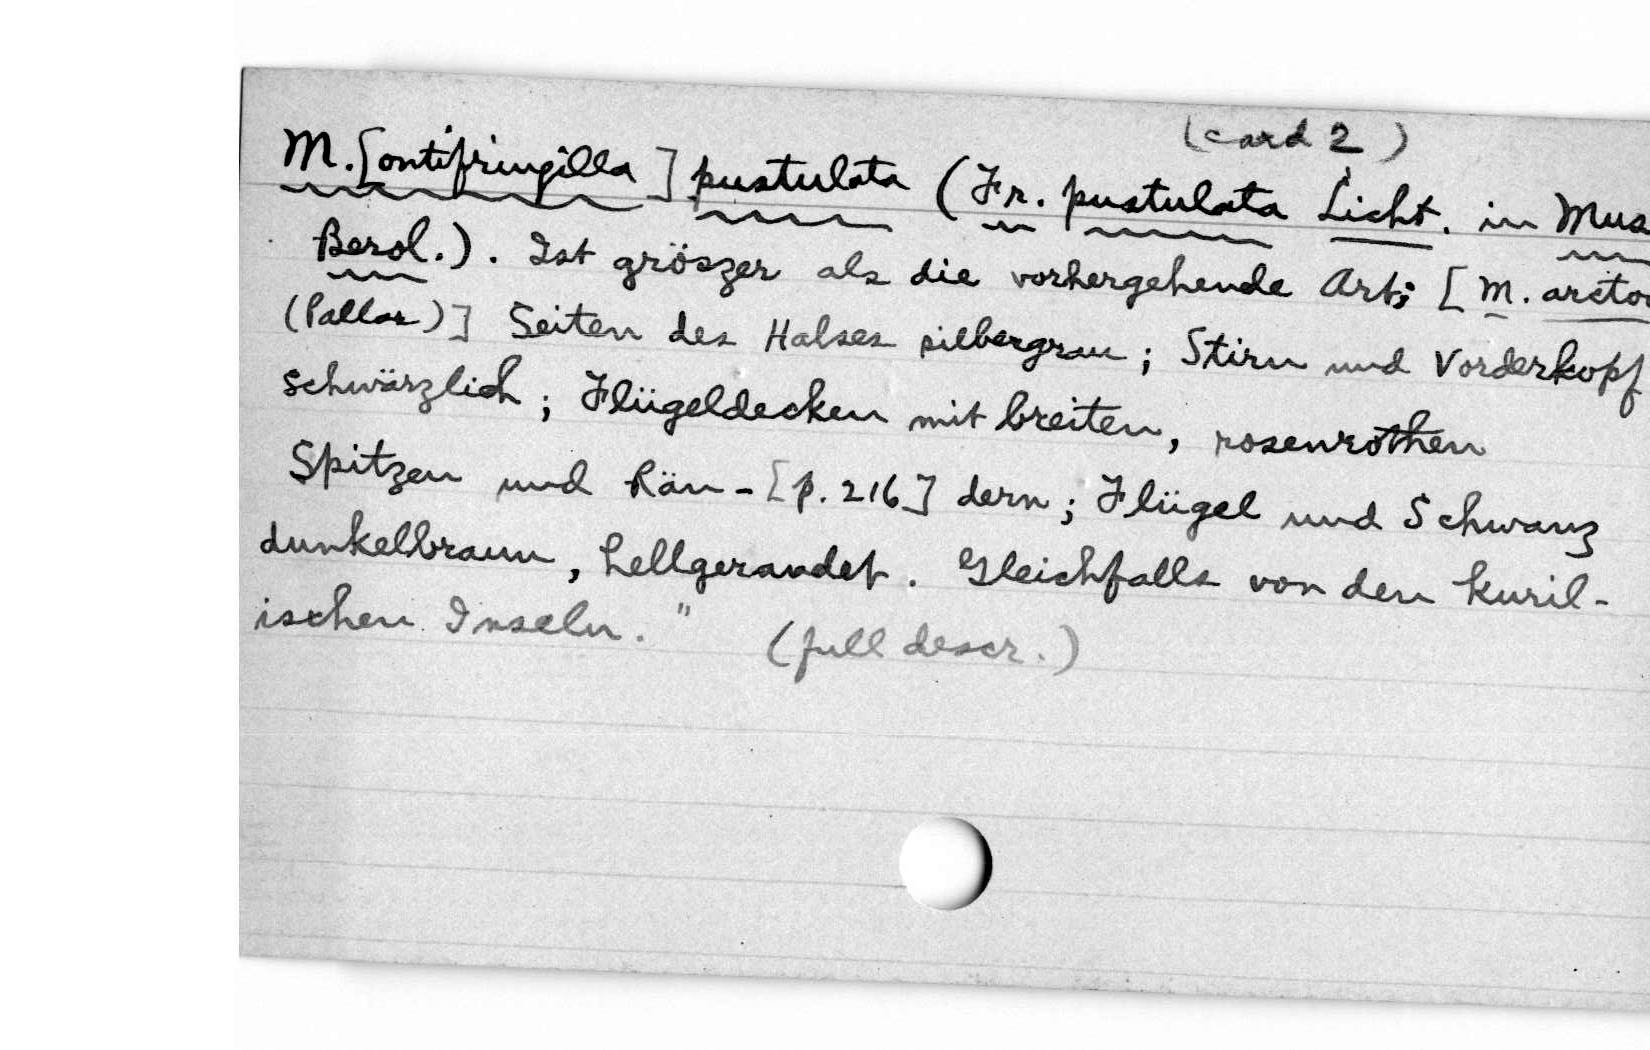 (card 2)
M.[ontifringilla] pustulata (Fr. pustulata Licht. in Mus
Berol.). Ist gröszer als die vorhergehende Art; [M. arcto
(Pallas)] Seiten des Halses silbergrau; Stirn und Vorderkopf
schwärzlich; Flügeldecken mit breiten, rosenrothen
Spitzen und Rän-[p. 216] dern; Flügel und Schwanz
dunkelbraun, hellgerandet. Gleichfalls von den kuril-
ischen Inseln." (full descr.)